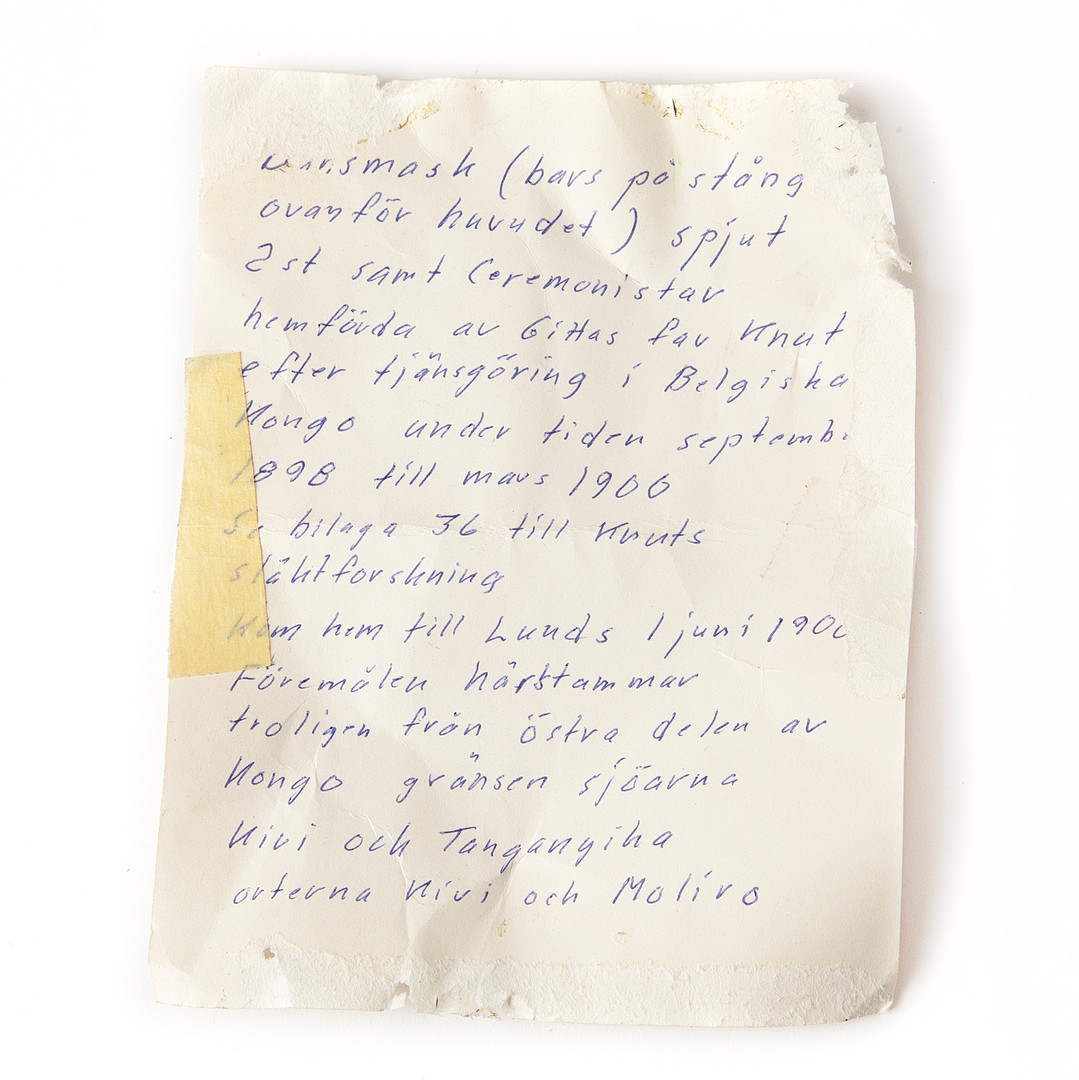 Dansmask (bars på stång
ovanför huvudet) spjut
2st samt Ceremonistav
hemförda av Gittas far Knut
efter tjänsgöring i Belgiska
Kongo under tiden septemb
1898 till mars 1900
Se bilaga 36 till Knuts
släktforskning
Kom hem till Lunds 1 juni 190
Föremålen härstammar
troligen från östra delen av
Kongo gränsen sjöarna
Kivi och Tanganyika
orterna Kivi och Moliro